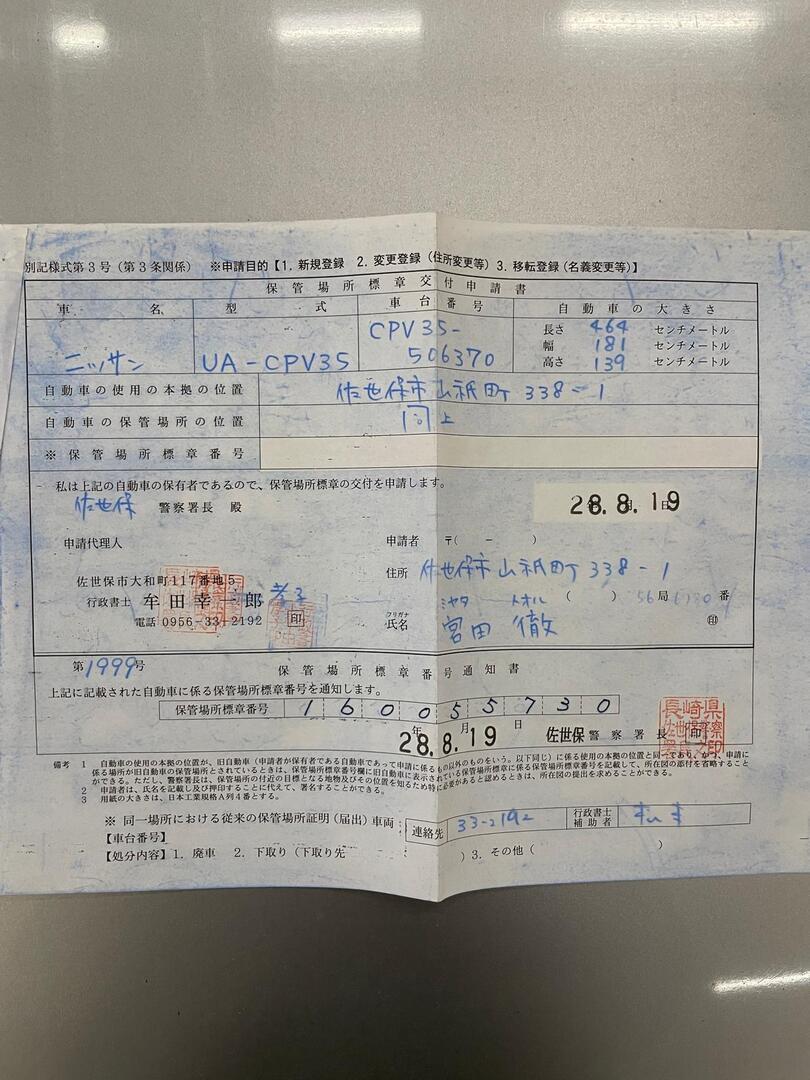 別記様式第3号(第3条関係) ※申請目的【1.新規登録 2.変更登録(住所変更等)3.移転登録(名義変更等)】
保管場所標章交付申請書
車名 型式 車台番号 自動車の大きさ
ニッサン UA-CPV35 CPV35-506370
長さ 464 センチメートル
幅 181 センチメートル
高さ 139 センチメートル
自動車の使用の本拠の位置 佐世保市山祇町338-1
自動車の保管場所の位置 同上
※保管場所標章番号
私は上記の自動車の保有者であるので、保管場所標章の交付を申請します。
佐世保 警察署長 殿 28.8.19
申請代理人 申請者 〒( - )
佐世保市大和町117番地5 住所 佐世保市山祇町338-1
行政書士 牟田幸一郎 印
電話 0956-33-2192
( ) 局 番
フリガナ ミヤタ トオル
氏名 宮田 徹 ㊞
第1999号 保管場所標章番号通知書
上記に記載された自動車に係る保管場所標章番号を通知します。
保管場所標章番号 160055730
年 月 日
28.8.19 佐世保警察署長 印
備考 1 自動車の使用の本拠の位置が、旧自動車(申請者が保有者である自動車であって申請に係るもの以外のものをいう。以下同じ)に係る使用の本拠と同一であり、かつ、申請に
係る場所が旧自動車の保管場所とされているときは、保管場所標章番号欄に旧自動車に表示されている保管場所標章に係る保管場所標章番号を記載して、所在図の添付を省略すること
ができる。ただし、警察署長は、保管場所の付近の目標となる地物及びその位置を知るため特に必要があると認めるときは、所在図の提出を求めることができる。
2 申請者は、氏名を記載し及び押印することに代えて、署名することができる。
3 用紙の大きさは、日本工業規格A列4番とする。
※ 同一場所における従来の保管場所証明(届出)車両
連絡先 33-2192 行政書士補助者
【車台番号】
【処分内容】1.廃車 2.下取り(下取り先 )3.その他( )